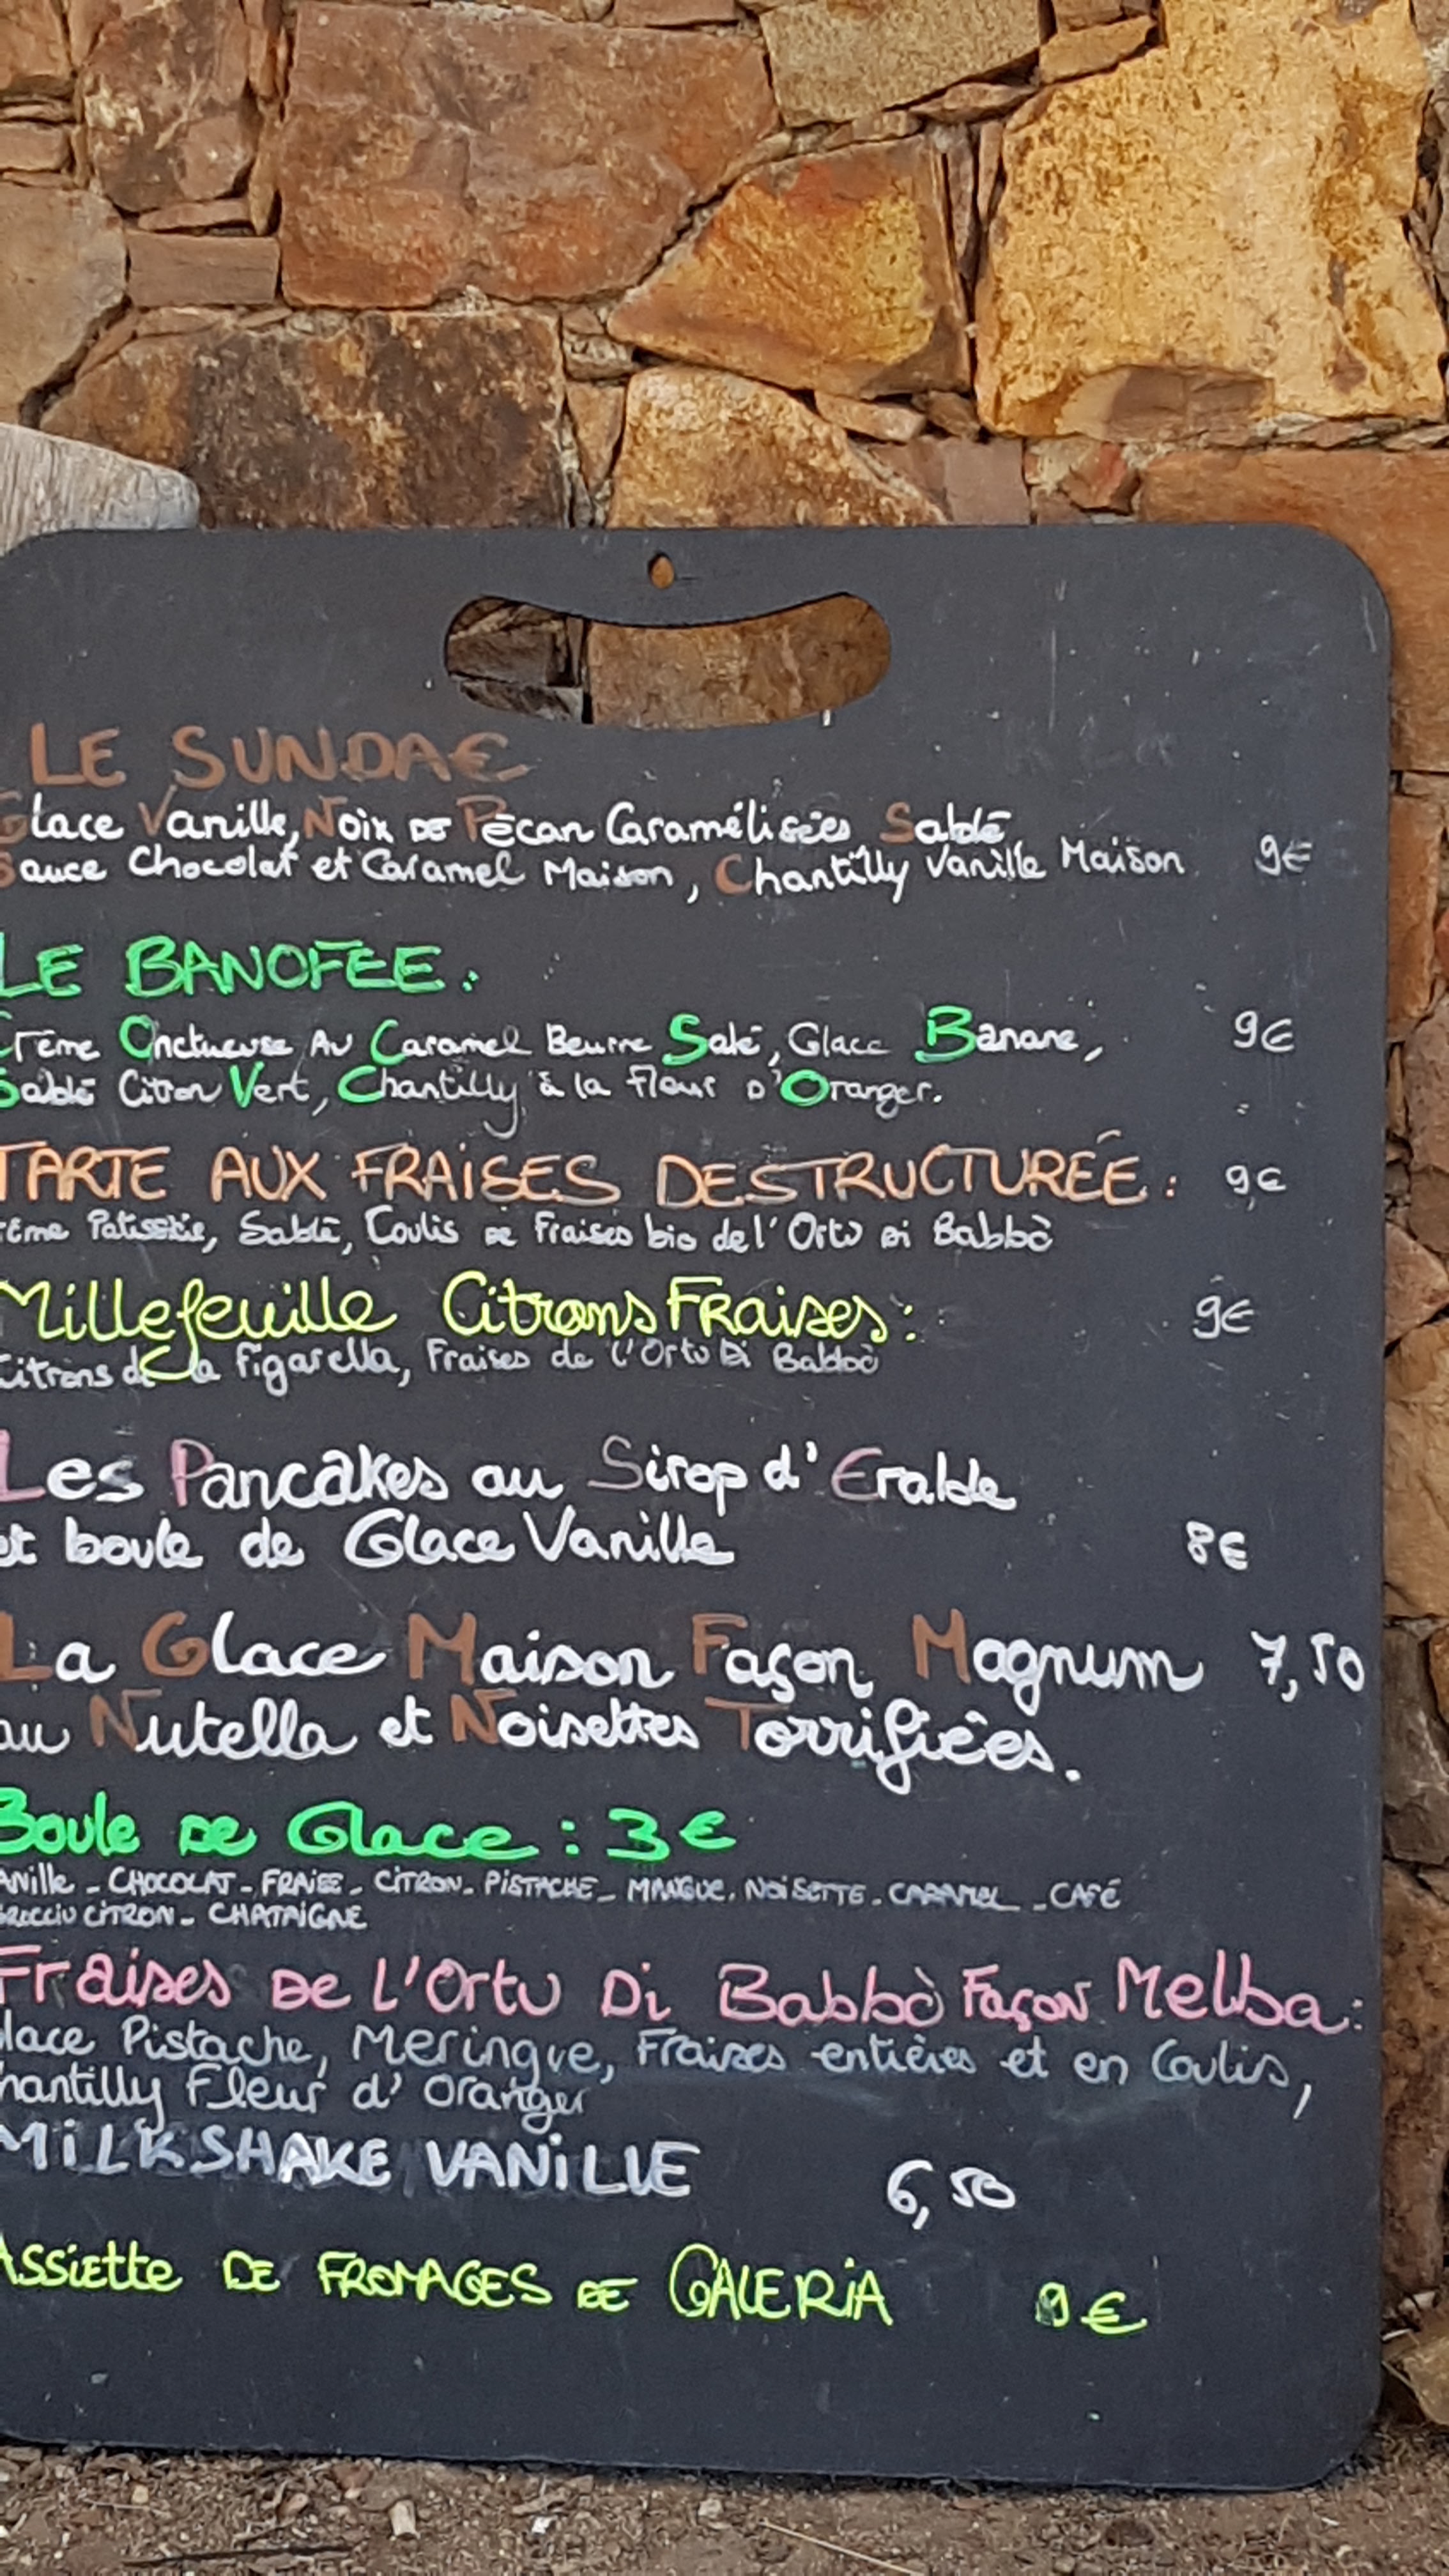 LE SUNDAE
Glace Vanille, Noix DE Pécan Caramélisées Sablé
Sauce Chocolat et Caramel Maison, Chantilly Vanille Maison 9€
LE BANOFEE:
Crème Onctueuse Au Caramel Beurre Salé, Glace Banane, 9€
Sablé Citron Vert, Chantilly à la Fleur D'Oranger.
TARTE AUX FRAISES DESTRUCTURÉE: 9€
rème Patissière, Sablé, Coulis DE Fraises bio de l'Ortu Di Babbò
Millefeuille Citrons Fraises: 9€
Citrons de la Figarella, Fraises de l'Ortu Di Babbò
Les Pancakes au Sirop d'Erable
et boule de Glace Vanille 8€
La Glace Maison Façon Magnum 7,50
au Nutella et Noisettes Torrifiées.
Boule DE Glace: 3€
anille - CHOCOLAT - FRAISE - CITRON - PISTACHE - MANGUE - NOISETTE - CARAMEL - CAFÉ
BROCCIU CITRON - CHATAIGNE
Fraises De L'Ortu Di Babbò Façon Melba:
lace Pistache, Meringue, Fraises entières et en Coulis,
hantilly Fleur d'Oranger
MILKSHAKE VANILLE 6,50
Assiette DE FROMAGES DE GALERIA 9€